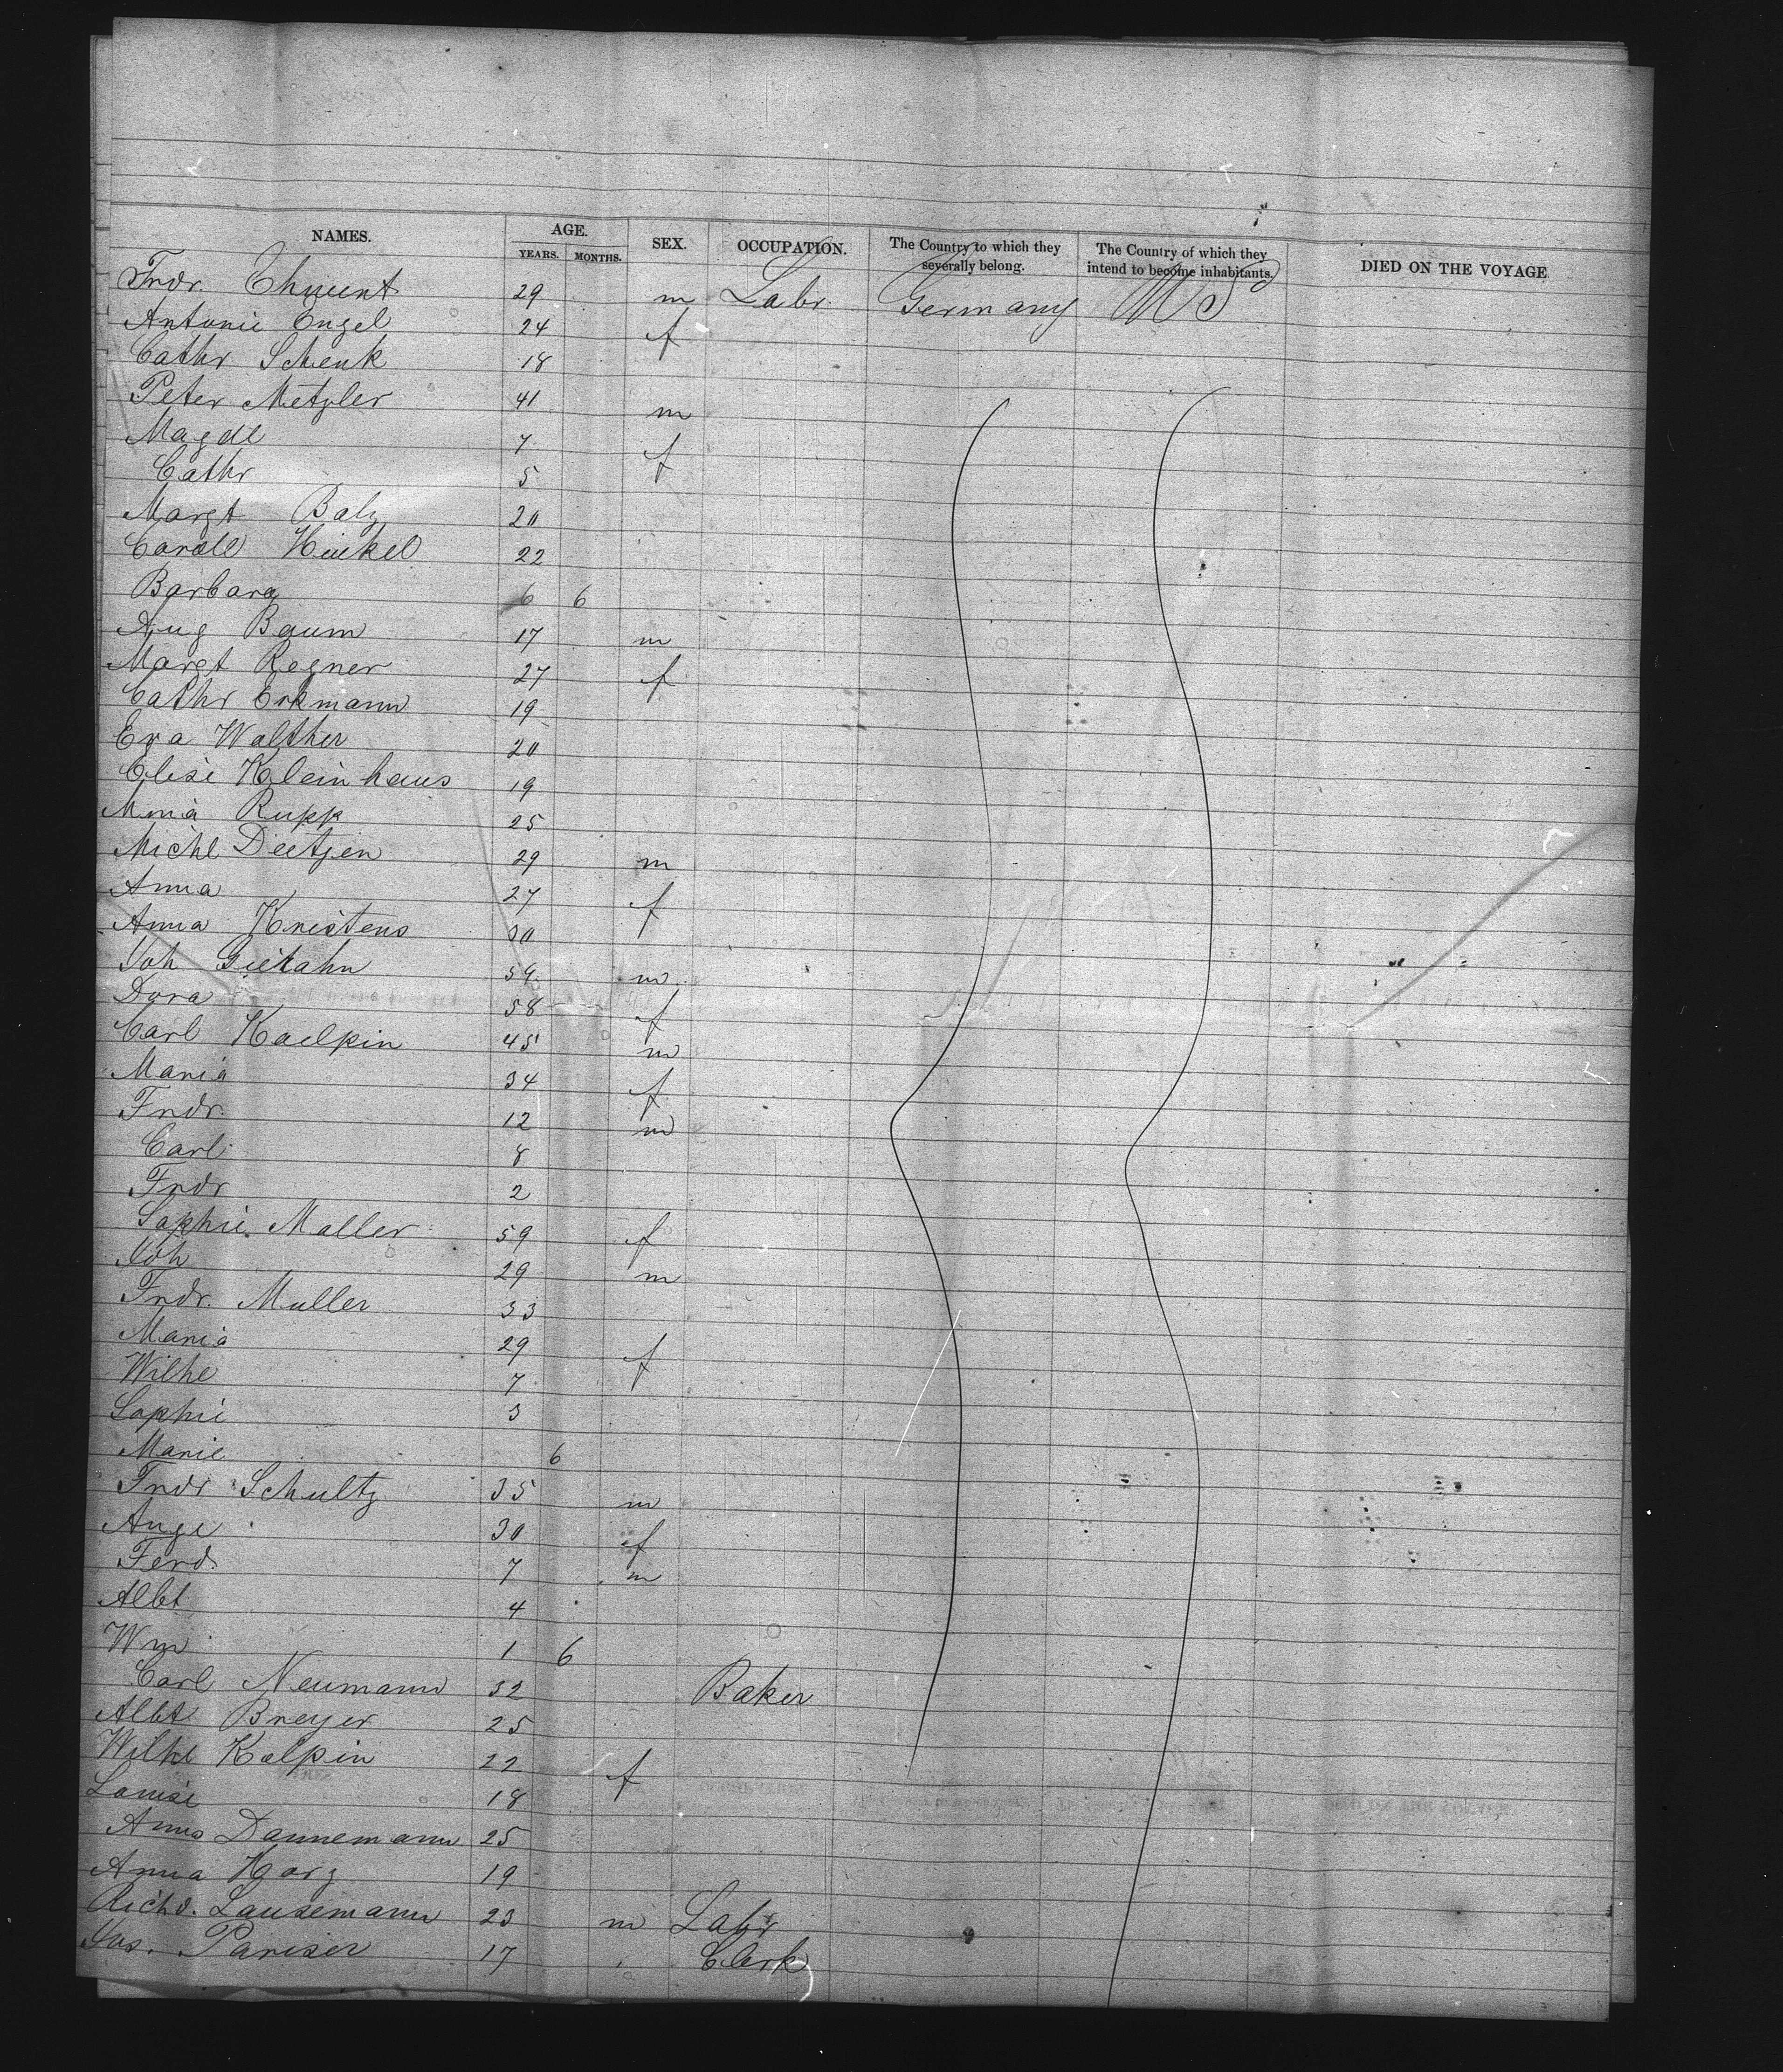 NAMES. AGE. SEX. OCCUPATION. The Country to which they severally belong. The Country of which they intend to become inhabitants. DIED ON THE VOYAGE
YEARS. MONTHS.
Fredr. 29 m Labr. Germany US
Antonie Engel 24 f
Cathr Schenk 18
Peter Metzler 41 m
Magdl 7 f
Cathr 5
Margt Balz 20
Caroll Hinkel 22
Barbara 6 6
Aug Baum 17 m
Margt Regner 27 f
Cathr Erkmann 19
Eva Walther 20
Elise Kleinhaus 19
Mina Rupp 25
Michl Dietjen 29 m
Anna 27 f
Anna Kristens 30
Joh Gietahn 59 m
Dora 58 f
Carl Kaelpin 45 m
Maria 34 f
Fredr. 12 m
Carl 8
Fredr 2
Sophie Maller 59 f
Joh 29 m
Fredr. Muller 33
Maria 29 f
Wilhe 7
Sophie 3
Marie 6
Fredr Schultz 35 m
Auge 30 f
Ferd. 7 m
Albt 4
Wm 1 6
Carl Neumann 32 Baker
Albt Breyer 25
Wilhe Kolpin 22 f
Louise 18
Anna Dannemann 25
Anna Harz 19
Richd. Lausemann 23 m Labr
Jos. Pariser 17 Clerk